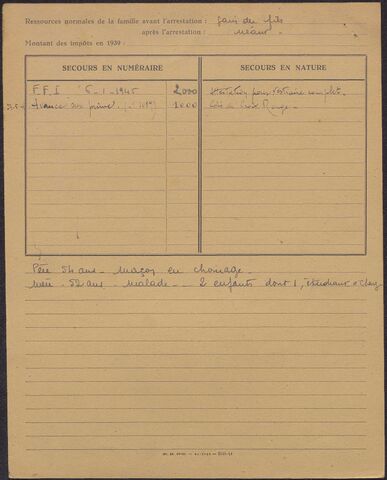 Ressources normales de la famille avant l'arrestation :
après l'arrestation : néant
Montant des impôts en 1939 :
SECOURS EN NUMÉRAIRE
SECOURS EN NATURE
F.F.I. 6-1-1945 2000
pour vestiaire complet.
avance 1000
Colis de Croix Rouge -
Père 54 ans - maçon en chomage -
mère - 52 ans - malade - 2 enfants dont 1 étudiant à